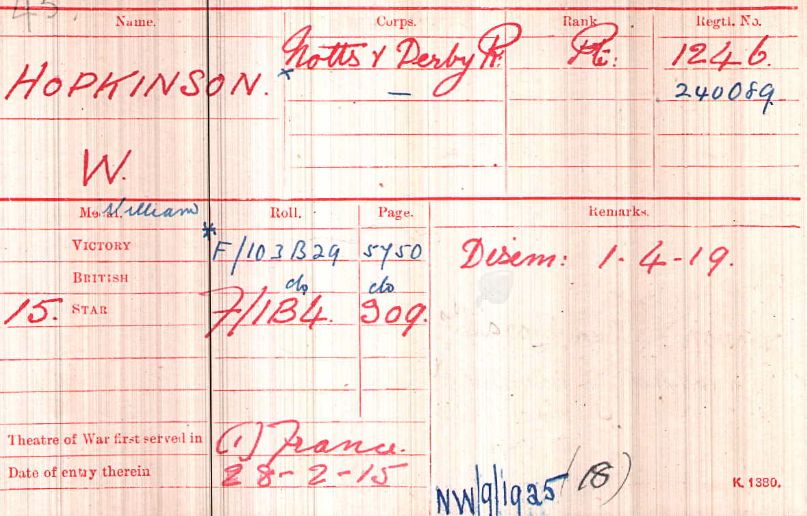 45.
Name. Corps. Rank Regtl. No.
HOPKINSON. Notts & Derby R. Pte: 1246.
x — 240089
W.
William
Medal. Roll. Page. Remarks.
VICTORY * F/103B29 5750 Disem: 1-4-19.
BRITISH do do
15. STAR F/1B4. 309.
Theatre of War first served in (1) France.
Date of entry therein 28-2-15
NW/9/1925 (18)
K. 1380.